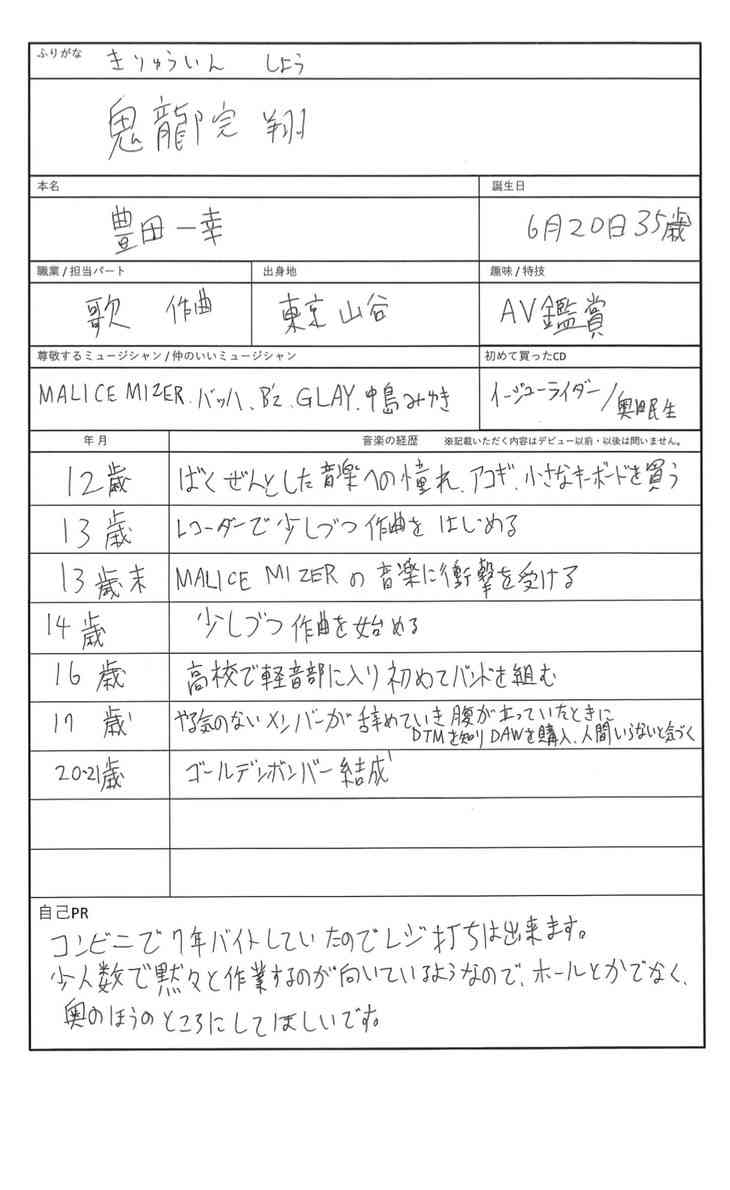 ふりがな きりゅういん しょう
鬼龍院 翔
本名 誕生日
豊田一幸 6月20日35歳
職業/担当パート 出身地 趣味/特技
歌 作曲 東京山谷 AV鑑賞
尊敬するミュージシャン/仲のいいミュージシャン 初めて買ったCD
MALICE MIZER、バッハ、B'z、GLAY、中島みゆき イージューライダー/奥田民生
年月 音楽の経歴 ※記載いただく内容はデビュー以前・以後は問いません。
12歳 ばくぜんとした音楽への憧れ、アコギ、小さなキーボードを買う
13歳 レコーダーで少しづつ作曲をはじめる
13歳末 MALICE MIZERの音楽に衝撃を受ける
14歳 少しづつ作曲を始める
16歳 高校で軽音部に入り初めてバンドを組む
17歳 やる気のないメンバーが辞めていき腹が立っていたときに
DTMを知りDAWを購入、人間いらないと気づく
20・21歳 ゴールデンボンバー結成
自己PR
コンビニで7年バイトしていたのでレジ打ちは出来ます。
少人数で黙々と作業するのが向いているようなので、ホールとかでなく、
奥のほうのところにしてほしいです。